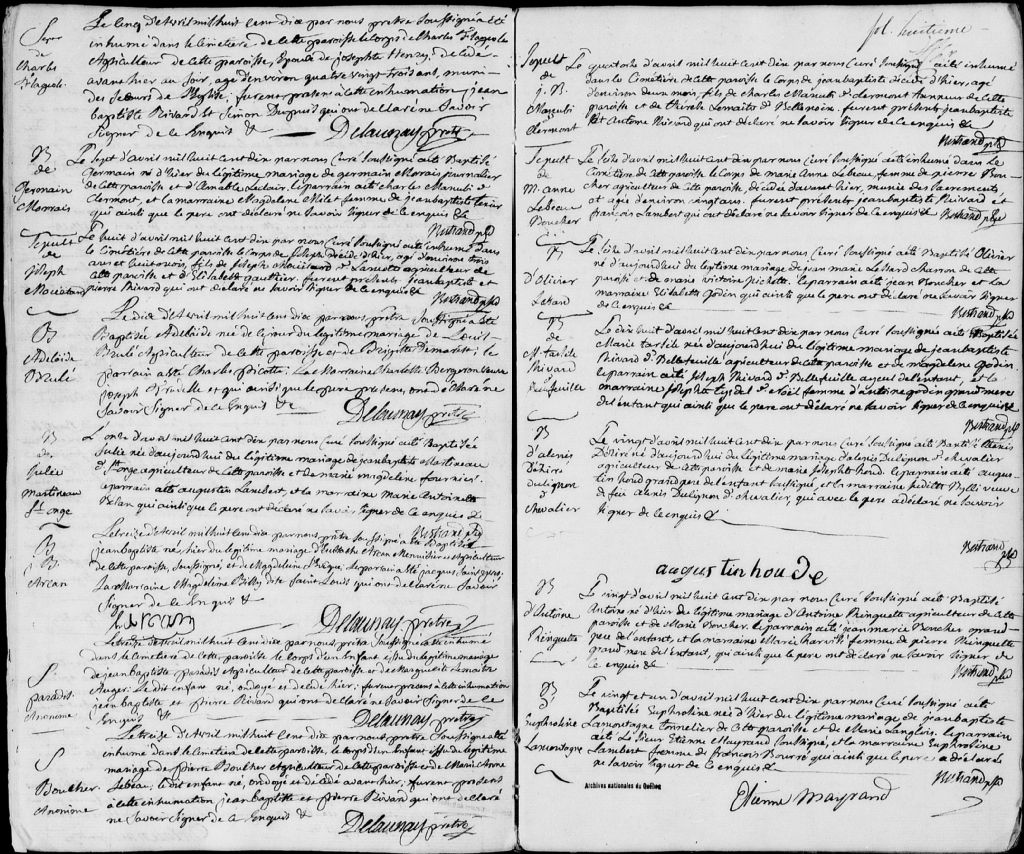 Sep.re
de
Charles
St Laguols
Le Cinq d'Avril mil huit Cent dix par nous prêtre Soussigné a été
inhumé dans le Cimetiere de Cette paroisse le Corps de Charles
Agriculteur de Cette paroisse, Epoux de josephte Henry, décédé
avant hier au Soir, agé d'environ quatre vingt trois ans, muni
des Secours de l'Eglise, furent présens à cette inhumation jean
baptiste Rivard et Simon Dupuis qui ont declaré ne Savoir
Signer de Ce Enquis &
Delaunay prêtre
B
de
Germain
Morrais
Le Sept d'avril mil huit cent dix par nous Curé Soussigné a été Baptisé
Germain né d'hier du légitime mariage de germain Morais journalier
de Cette paroisse et d'amable Leclair, le parrain a été charles Maheuti d
Clermont, et la marraine Magdelene Milet femme de jean baptiste
qui ainsi que le pere ont déclaré ne Savoir Signer de ce enquis &
Bertrand ptre
Sepult
de
Joseph
Le huit d'avril mil huit cent dix par nous Curé Soussigné a été inhumé dans
le Cimetiere de Cette paroisse le Corps de Joseph décédé d'hier, agé d'environ trois
ans et huit mois, fils de Joseph agriculteur de
Cette paroisse et d'Elizabeth gauthier, furent présents jean baptiste et
pierre Rivard qui ont déclaré ne Savoir Signer de ce enquis &
Bertrand ptre
B
Adelaide
Brulé
Le dix d'Avril mil huit Cent dix par nous, prêtre Soussigné a été
Baptisée Adelaide née de Ce jour du légitime mariage de Louis
Brulé Agriculteur de Cette paroisse et de Brigitte Demarets; le
parrain a été Charles Picotte; La Marraine Charlotte Bergeron Veuve
joseph et qui ainsi que le pere présent, ont déclaré ne
Savoir Signer de Ce Enquis &
Delaunay prêtre
B
de
Julie
Martineau
St onge
L'onze d'avril mil huit cent dix par nous Curé Soussigné a été Baptisée
Julie née d'aujourd'hui du légitime mariage de jean baptiste Martineau
St onge agriculteur de Cette paroisse et de marie magdelene fournier.
le parrain a été augustin Lambert, et la marraine Marie Antoinette
qui ainsi que le pere ont déclaré ne Savoir Signer de ce enquis &
Bertrand ptre
B
B
Arcan
Le treize d'Avril mil huit Cent dix par nous prêtre Soussigné a été Baptisé
jean baptiste né hier du légitime mariage d'Eustache Arcan Menuisier et Agriculteur
de Cette paroisse, Soussigné, et de Magdeleine le parrain a été jacques
La Marraine Magdeleine Billy dite Saint Louis qui ont declaré ne Savoir
Signer de Ce Enquis &
Delaunay prêtre
S
paradis
Anonime
Le treize d'Avril mil huit Cent dix par nous, prêtre Soussigné a été inhumé
dans le Cimetiere de Cette paroisse le Corps d'un Enfant issu du légitime mariage
de jean baptiste paradis Agriculteur de Cette paroisse et de Marguerite
Auger. Le dit enfant né, ondoyé et décédé hier; furent présens à cette inhumation
jean baptiste et pierre Rivard qui ont declaré ne Savoir Signer de Ce
Enquis &
Delaunay prêtre
S
Boucher
Anonime
Le treize d'Avril mil huit Cent dix par nous, prêtre Soussigné a été
inhumé dans le Cimetiere de Cette paroisse, le Corps d'un Enfant issu du légitime
mariage de pierre Boucher Agriculteur de Cette paroisse et de Marie Anne
Lebeau, le dit enfant né, ondoyé et décédé avant hier, furent présens
à cette inhumation jean baptiste et pierre Rivard qui ont declaré
ne Savoir Signer de Ce Enquis &
Delaunay prêtre
fol. huitieme
Sepult
de
j. B.
Maheuti
Clermont
Le quatorze d'avril mil huit cent dix par nous Curé Soussigné a été inhumé
dans le Cimetiere de Cette paroisse le Corps de jean baptiste décédé d'hier, agé
d'environ deux mois, fils de Charles Maheuti d clermont de Cette
paroisse et de therese Lemaitre d Bellenoix. furent présents jean baptiste
et Antoine Rivard qui ont déclaré ne Savoir Signer de ce enquis &
Bertrand ptre
Sepult
de
M. anne
Lebeau
Boucher
Le seize d'avril mil huit cent dix par nous Curé Soussigné a été inhumé dans Le
Cimetiere de Cette paroisse le Corps de marie Anne Lebeau femme de pierre Bou-
cher agriculteur de Cette paroisse, décédée d'avant hier, munie des Sacrements
et agée d'environ vingt ans. furent présents jean baptiste Rivard et
françois Lambert qui ont déclaré ne Savoir Signer de ce enquis &
Bertrand ptre
B
D'Olivier
Le seize d'avril mil huit cent dix par nous Curé Soussigné a été Baptisé Olivier
né d'aujourd'hui du légitime mariage de jean marie charron de Cette
paroisse et de marie victoire pichette. le parrain a été jean Boucher et La
marraine Elizabeth Godin qui ainsi que le pere ont déclaré ne Savoir Signer
de ce enquis &
Bertrand ptre
B
de
M. tarsile
Rivard
Bellefeuille
Le dix huit d'avril mil huit cent dix par nous Curé Soussigné a été Baptisée
Marie tarsile née d'aujourd'hui du légitime mariage de jean baptiste
Rivard d Bellefeuille agriculteur de Cette paroisse et de magdelene Godin.
le parrain a été Joseph Rivard d Bellefeuille ayeul de l'enfant, et la
marraine Josephte femme d'antoine godin grand mere
de l'enfant qui ainsi que le pere ont déclaré ne Savoir Signer de ce enquis &
Bertrand ptre
B
d'alexis
Déziré
Dulignon
d
Chevalier
Le vingt d'avril mil huit cent dix par nous Curé Soussigné a été Baptisé alexis
Déziré né d'aujourd'hui du légitime mariage d'alexis Dulignon d chevalier
agriculteur de Cette paroisse et de marie Josephte houd. le parrain a été augus-
tin houd grand pere de l'enfant Soussigné, et la marraine Judith Belle veuve
de feu alexis Dulignon d chevalier, qui avec le pere a déclaré ne Savoir
Signer de ce enquis &
Bertrand ptre
augustin hou de
B
d'Antoine
Ringuette
Le vingt d'avril mil huit cent dix par nous Curé Soussigné a été Baptisé
Antoine né d'hier du légitime mariage d'Antoine Ringuette agriculteur de Cette
paroisse et de Marie Boucher. le parrain a été jean marie Boucher grand
pere de l'enfant, et la marraine Marie femme de pierre Ringuette
grand mere de l'enfant, qui ainsi que le pere ont déclaré ne Savoir Signer de
Ce enquis &
Bertrand ptre
B
Euphrosine
Lamontagne
Le vingt et un d'avril mil huit cent dix par nous Curé Soussigné a été
Baptisée Euphrosine née d'hier du légitime mariage de jean baptiste
Lamontagne tonnelier de Cette paroisse et de Marie Langlois. le parrain
a été Le Sieur Etienne Mayrand Soussigné, et la marraine Euphrosine
Lambert femme de françois Bourré qui ainsi que le pere a déclaré
ne Savoir Signer de ce enquis &
Bertrand ptre
Etienne Mayrand
Archives nationales du Québec